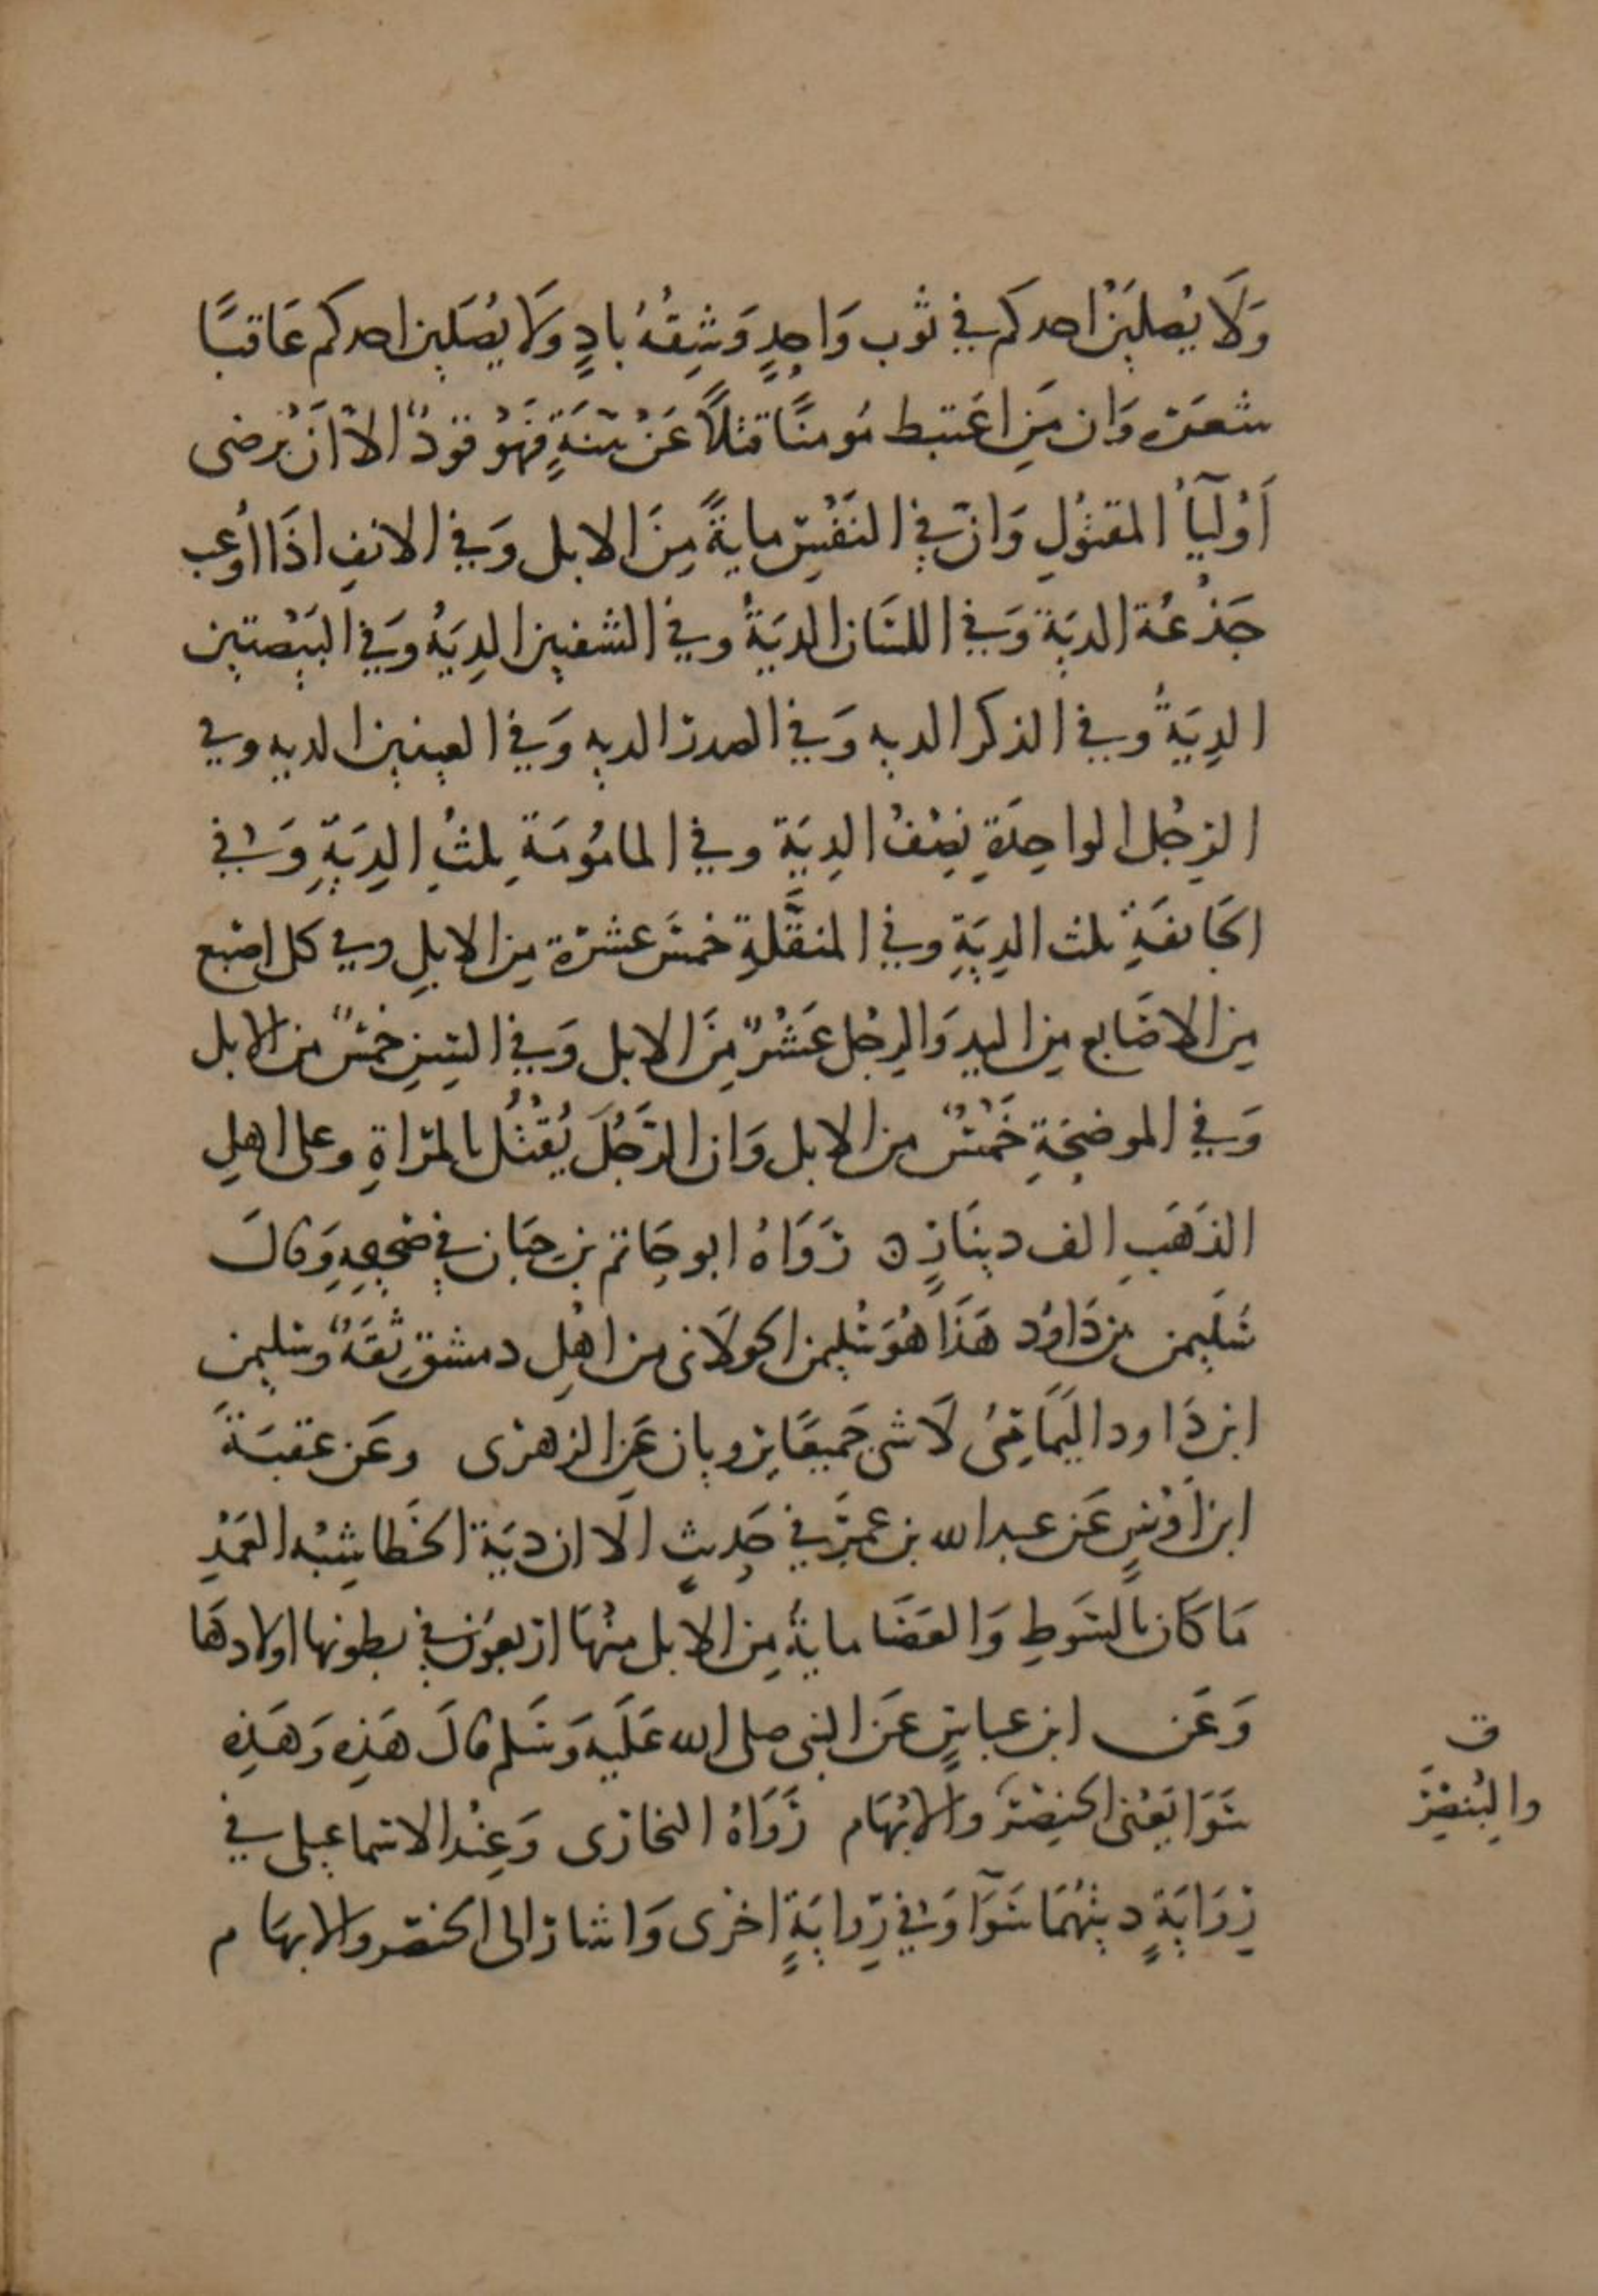 وَلَا يُصلِيَنَّ احدكم في ثوب وَاحِدٍ وَشِقُهُ بادٍ وَلَا يُصَلين احدكم عَاقصًا
شعَره وَان مَنِ اعْتبط مُومنًا قتلًا عَنْ بينَةٍ فَهُوَ قودٌ الاّ اَنْ يُرضى
اَوْليَآُ المقتُولِ وَانّ في النَفْسِ مايةً مِنَ الابل وَفي الانفِ اذَا اُوعب
جَدْعُهُ الديَة وَفي اللسَان الديَةُ وفي الشفتين الدِيَةُ وَفي البَيْضتين
الدِيَةُ وفي الذكر الديه وَفي الصدر الديه وَفي العينين الديه وفي
الرِجْلِ الواحِدَةِ نِصْفُ الدِيَة وفي المامُومَةِ ثلثُ الدِيَةِ وَفي
الجَائفَةِ ثلث الدِيَةِ وفي المنقَّلةِ خمسَ عشرَة مِن الابلِ وفي كل اصْبع
مِن الاصَابع مِن اليد وَالرِجْل عَشْرٌ مِنَ الابل وَفي السِنِ خَمْسٌ من الابل
وَفي الموضحَةِ خَمْسٌ من الابل وَان الرَجُلَ يُقْتُل بالمرَاةِ وعلى اهلِ
الذَهَبِ الف دينَارٍ ن رَوَاهُ ابو حَاتم بن حبَان في صَحِيحِهِ وَقالَ
سُلَيمن بن دَاوُد هَذَا هُوَ سُليمن الخولَاني من اهْلِ دمشق ثِقَةٌ وسليمن
ابن دَاود اليَمَامِيُ لَا شي جَميعًا يرويان عَنِ الزهرى وعَن عقبَةَ
ابن اَوْسٍ عَن عبد الله بن عمرَ في حَدِيثٍ الَا ان ديَة الخَطا شِبْه العَمْدِ
مَا كَان بالسَوطِ وَالعَصَا مايةُ مِن الابل مِنْهَا اربعُون في بطونها اولادهَا
وَعَن ابن عباسٍ عَن النبى صلى الله عَلَيه وَسَلم قالَ هَذِه وَهَذِه
سَوَا يَعْني الخِنصَرَ وَالابْهَام رَوَاهُ البخارى وَعِنْد الاسماعيلى في
رِوَايَةٍ ديتُهُمَا سَوَآ وَفي رِوايَةٍ اخْرى وَاشارَ الى الخنصَر والابهَام
ق
والبِنْصِرَ